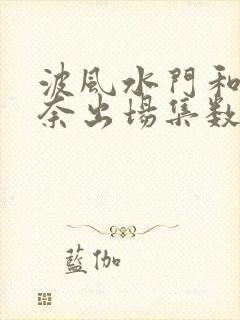 波風水門和
奈出場集数
藍伽